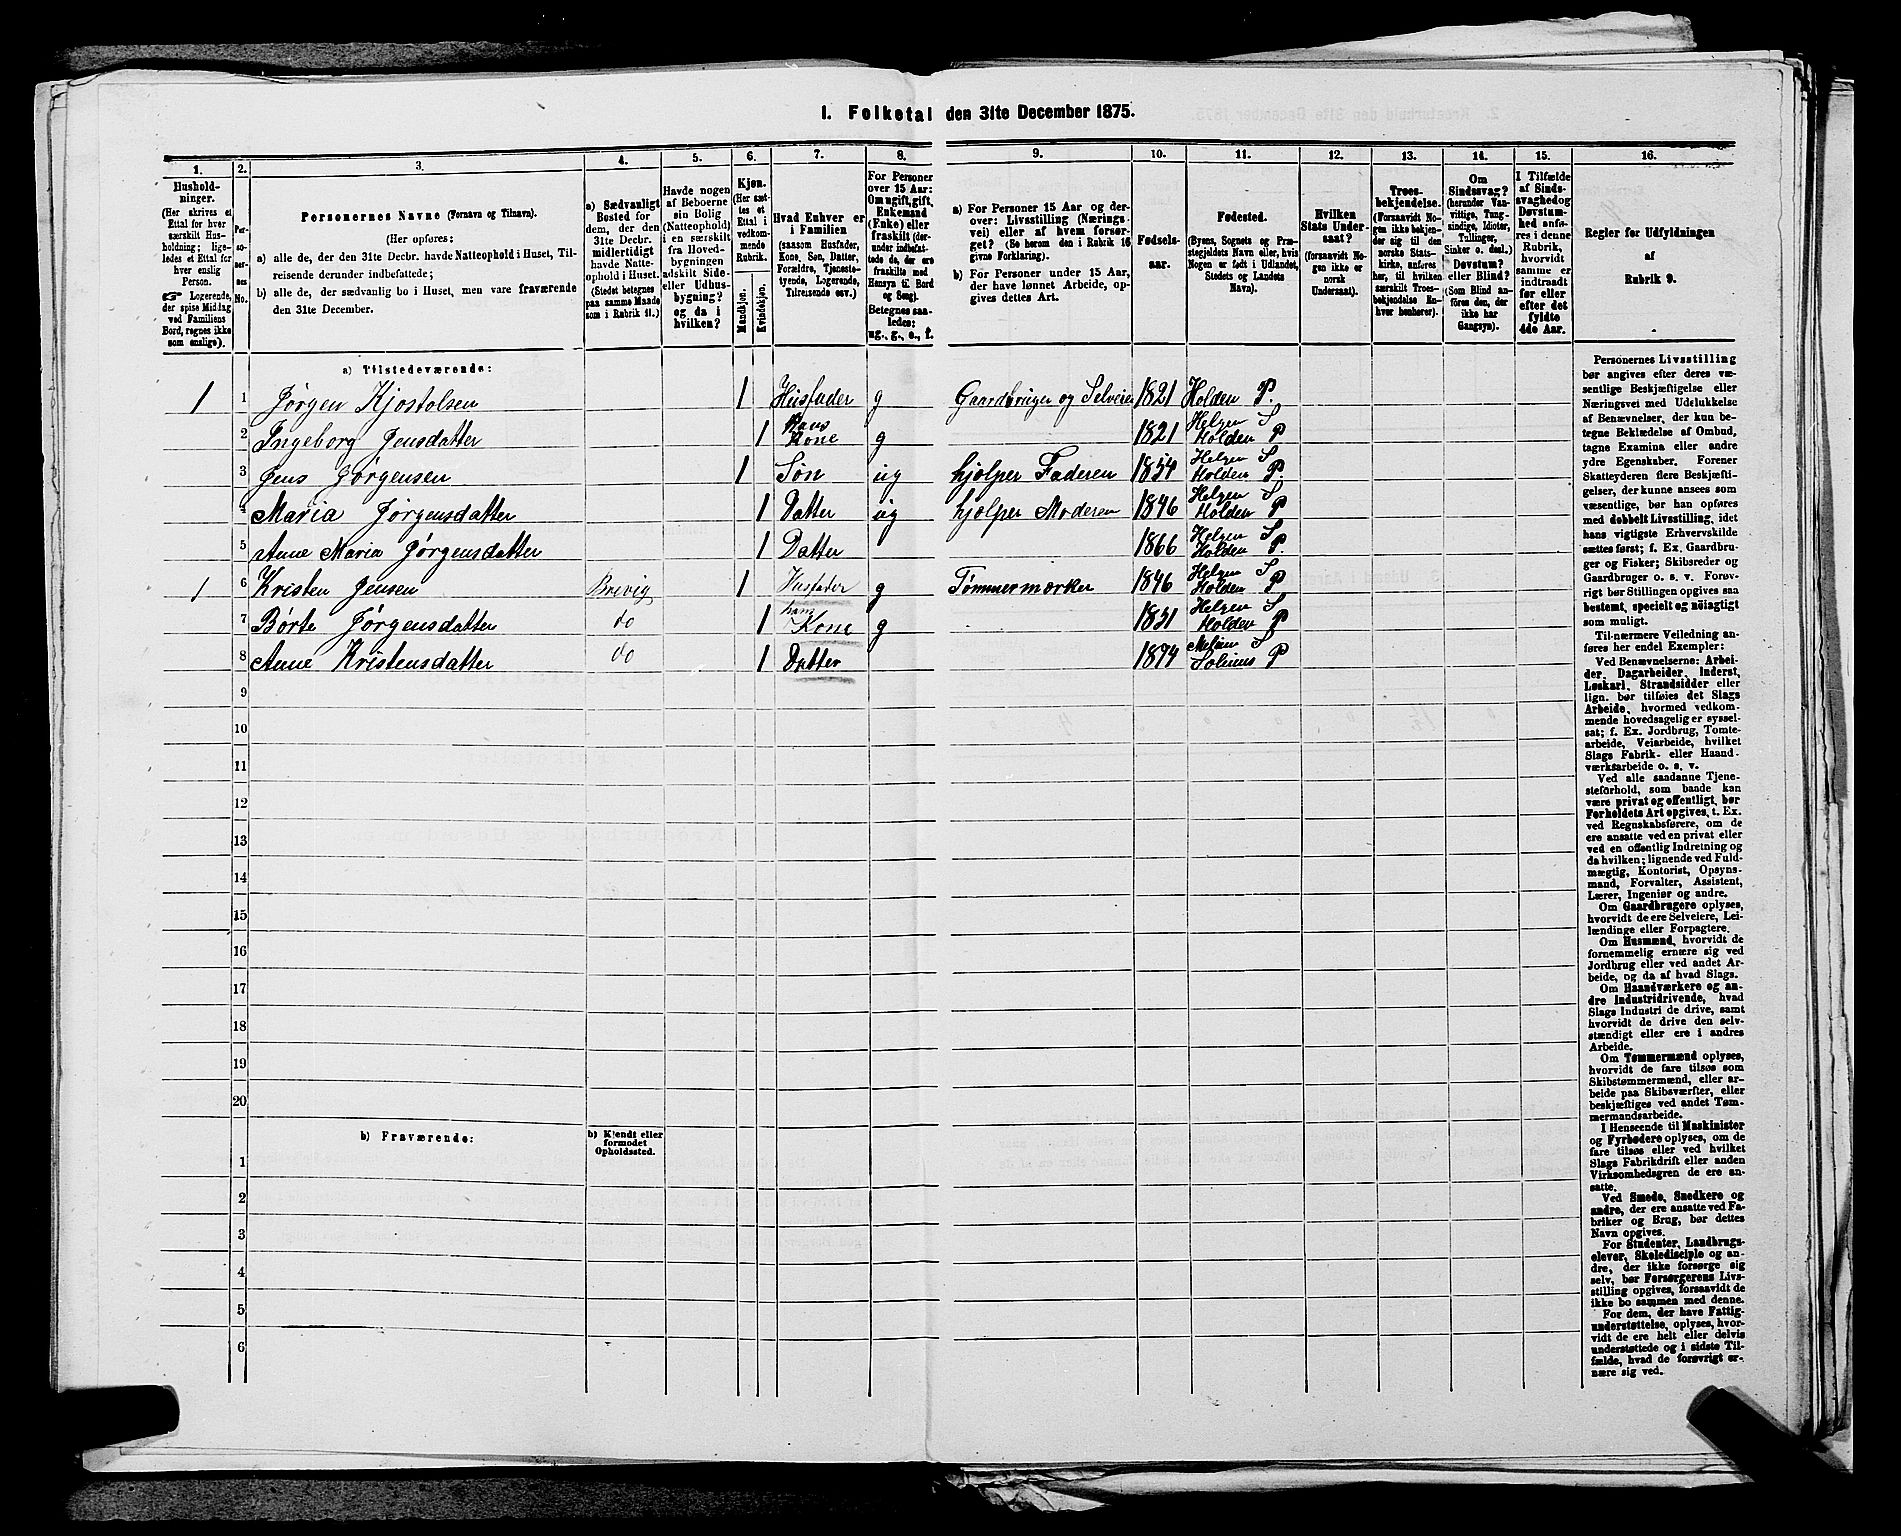 I. Folketal den 31te December 1875.
1. 2. 3. 4. 5. 6. 7. 8. 9. 10. 11. 12. 13. 14. 15. 16.
Hushold-
ninger.
(Her skrives et
Ettal for hver
særskilt Hus-
holdning; lige-
ledes et Ettal for
hver enslig
Person.
☞ Logerende,
der spise Middag
ved Familiens
Bord, regnes ikke
som enslige).
Per-
so-
ner-
nes
No.
Personernes Navne (Fornavn og Tilnavn).
(Her opføres:
a) alle de, der den 31te Decbr. havde Natteophold i Huset, Til-
reisende derunder indbefattede;
b) alle de, der sædvanlig bo i Huset, men vare fraværende
den 31te December.
a) Sædvanligt
Bosted for
dem, der den
31te Decbr.
midlertidigt
havde Natte-
ophold i Huset.
(Stedet betegnes
paa samme Maade
som i Rubrik 11.)
Havde nogen
af Beboerne
sin Bolig
(Natteophold)
i en særskilt
fra Hoved-
bygningen
adskilt Side-
eller Udhus-
bygning?
og da i
hvilken?
Kjøn.
(Her sæt-
tes et
Ettal i
vedkom-
mende
Rubrik.
Mandkjøn.
Kvindekjøn.
Hvad Enhver er
i Familien
(saasom Husfader,
Kone, Søn, Datter,
Forældre, Tjeneste-
tyende, Logerende,
Tilreisende osv.)
For Personer
over 15 Aar:
Om ugift, gift,
Enkemand
(Enke) eller
fraskilt (der-
under indbefat-
tede de, der ere
fraskilte med
Hensyn til Bord
og Seng).
Betegnes saa-
ledes:
ug., g., e., f.
a) For Personer 15 Aar og der-
over: Livsstilling (Nærings-
vei) eller af hvem forsør-
get? (Se herom den i Rubrik 16
givne Forklaring).
b) For Personer under 15 Aar,
der have lønnet Arbeide, op-
gives dettes Art.
Fødsels-
aar.
Fødested.
(Byens, Sognets og Præ-
stegjeldets Navn eller, hvis
Nogen er født i Udlandet,
Stedets og Landets
Navn).
Hvilken
Stats Under-
saat?
(forsaavidt No-
gen ikke er
norsk
Undersaat).
Troes-
bekjendelse.
(Forsaavidt No-
gen ikke bekjen-
der sig til den
norske Stats-
kirke, anføres
her, til hvilken
særskilt Troes-
bekjendelse En-
hver henhører).
Om
Sindssvag?
(herunder Van-
vittige, Tung-
sindige, Idioter,
Tullinger,
Sinker o. desl.)
Døvstum?
eller Blind?
(Som Blind an-
føres den, der
ikke har
Gangsyn).
I Tilfælde
af Sinds-
svaghed og
Døvstum-
hed anfø-
res i denne
Rubrik,
hvorvidt
samme er
indtraadt
før eller
efter det
fyldte
4de Aar.
Regler for Udfyldningen
af
Rubrik 9.
a) Tilstedeværende:
1 1 Jørgen Kjostolsen 1 Husfader g Gaardbruger og Selveier 1821 Holden P.
2 Ingeborg Jensdatter 1 Hans Kone g 1821 Helgen S Holden P
3 Jens Jørgensen 1 Søn ug hjælper Faderen 1854 Helgen S Holden P.
4 Maria Jørgensdatter 1 Datter ug hjælper Moderen 1846 Helgen S Holden P
5 Anne Maria Jørgensdatter 1 Datter 1866 Helgen S Holden P.
1 6 Kristen Jensen Brevig 1 Husfader g Tømmermærker 1846 Helgen S Holden P
7 Børte Jørgensdatter do 1 hans Kone g 1851 Helgen S Holden P
8 Anne Kristensdatter do 1 Datter 1874 S P
9
10
11
12
13
14
15
16
17
18
19
20
b) Fraværende: b) Kjendt eller
formodet
Opholdssted.
1
2
3
4
5
6
Personernes Livsstilling
bør angives efter deres væ-
sentlige Beskjæftigelse eller
Næringsvei med Udelukkelse
af Benævnelser, der kun be-
tegne Beklædelse af Ombud,
tagne Examina eller andre
ydre Egenskaber. Forener
Skatteyderen flere Beskjæfti-
gelser, der kunne ansees som
væsentlige, bør han opføres
med dobbelt Livsstilling, idet
hans vigtigste Erhvervskilde
sættes først; f. Ex. Gaardbru-
ger og Fisker; Skibsreder og
Gaardbruger o. s. v. Forøv-
rigt bør Stillingen opgives saa
bestemt, specielt og nøiagtigt
som muligt.
Til nærmere Veiledning an-
føres her endel Exempler:
Ved Benævnelserne: Arbei-
der, Dagarbeider, Inderst,
Løskarl, Strandsidder eller
lign. bør tilføies det Slags
Arbeide, hvormed vedkom-
mende hovedsagelig er syssel-
sat; f. Ex. Jordbrug, Tomte-
arbeide, Veiarbeide, hvilket
Slags Fabrik- eller Haand-
værksarbeide o. s. v.
Ved alle saadanne Tjene-
steforhold, som baade kan
være privat og offentligt, bør
Forholdets Art opgives, t. Ex.
ved Regnskabsførere, om de
ere ansatte ved en privat eller
ved en offentlig Indretning og
da hvilken; lignende ved Fuld-
mægtig, Kontorist, Opsyns-
mand, Forvalter, Assistent,
Lærer, Ingeniør og andre.
Om Gaardbrugere oplyses,
hvorvidt de ere Selveiere, Lei-
lændinge eller Forpagtere.
Om Husmænd, hvorvidt de
fornemmelig ernære sig ved
Jordbrug eller ved andet Ar-
beide, og da af hvad Slags.
Om Haandværkere og an-
dre Industridrivende, hvad
Slags Industri de drive, samt
hvorvidt de drive den selv-
stændigt eller ere i andres
Arbeide.
Om Tømmermænd oplyses,
hvorvidt de fare tilsøs som
Skibstømmermænd, eller ar-
beide paa Skibsværfter, eller
beskjæftiges ved andet Tøm-
mermandsarbeide.
I Henseende til Maskinister
og Fyrbødere oplyses, om de
fare tilsøs eller ved hvilket
Slags Fabrikdrift eller anden
Virksomhedsgren de ere an-
satte.
Ved Smede, Snedkere og
andre, der ere ansatte ved Fa-
briker og Brug, bør dettes
Navn opgives.
For Studenter, Landbrugs-
elever, Skoledisciple og an-
dre, der ikke forsørge sig
selv, bør Forsørgerens Livs-
stilling opgives, forsaavidt de
ikke bo sammen med denne.
For dem, der have Fattig-
understøttelse, oplyses, hvor-
vidt de ere helt eller delvis
understøttede og i sidste Til-
fælde, hvad de forøvrigt er-
nære sig ved.